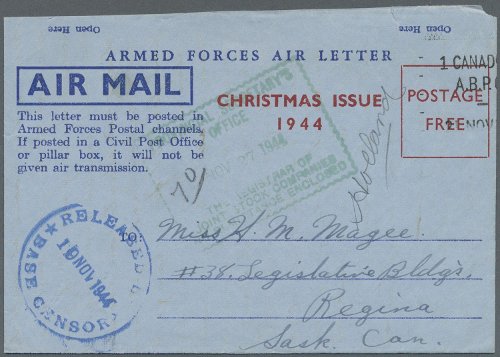 Open Here
Open Here
ARMED FORCES AIR LETTER
AIR MAIL
This letter must be posted in
Armed Forces Postal channels.
If posted in a Civil Post Office
or pillar box, it will not be
given air transmission.
CHRISTMAS ISSUE
1944
POSTAGE
FREE
1 CANAD
A.B.P.O
NOV
OFFICE
NOV 27 1944
REGISTRAR OF
JOINT STOCK COMPANIES
ENCLOSED
Holland
RELEASED
10 NOV 1944
BASE CENSOR
TO
Miss H. M. Magee.
#38. Legislative Bldg's,
Regina
Sask. Can.